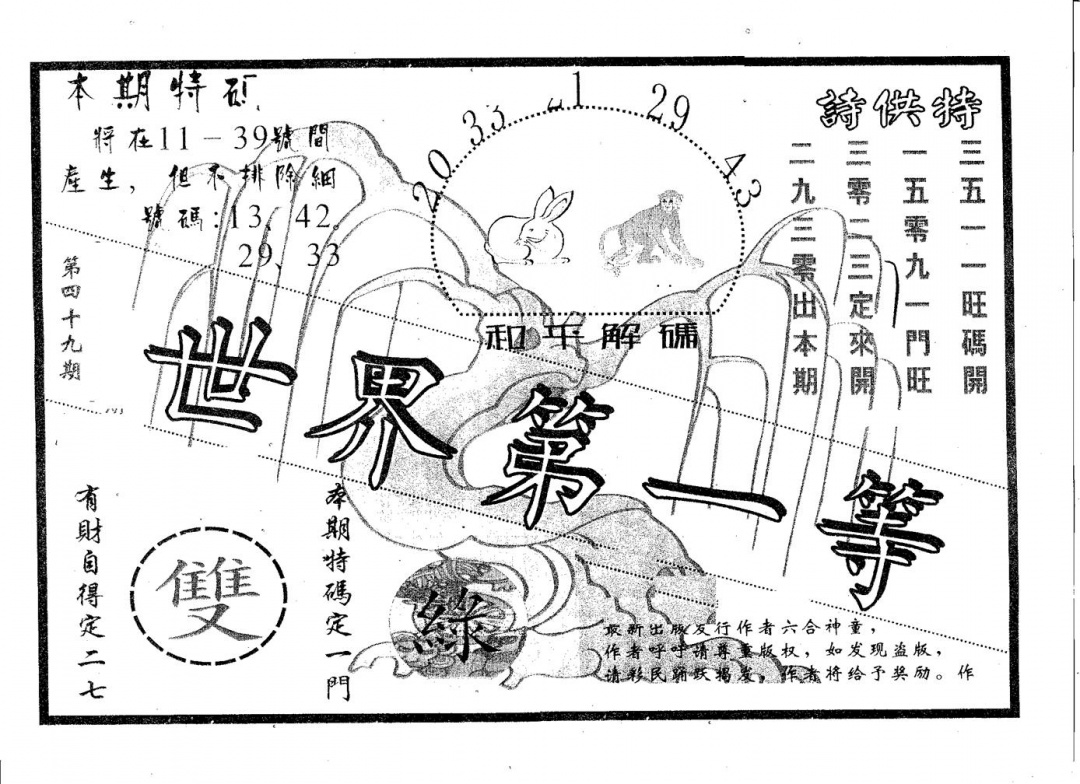 本期特碼
將在11－39號間
產生，但不排除細
號碼：13、42。
29、33
第四十九期
20 33 1 29 43
和平解碼
特供詩
三五一一旺碼開
一五零九一門旺
三零二三定來開
二九三零出本期
世界第一等
有財自得定二七
雙
本期特碼定一門
綠
最新出版发行作者六合神童，
作者呼呼请尊重版权，如发现盗版，
请彩民踊跃揭发，作者将给予奖励。作